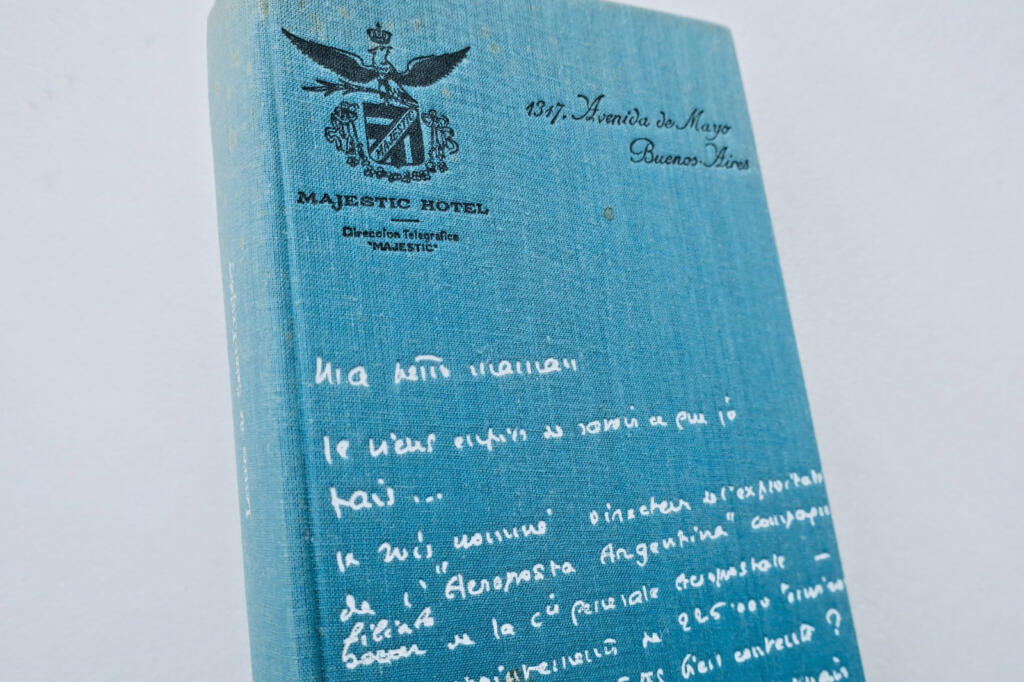 MAJESTIC
MAJESTIC HOTEL
Direccion Telegrafica
"MAJESTIC"
1317. Avenida de Mayo
Buenos-Aires
Ma petite maman
Je viens enfin de savoir ce que je
fais ...
Je suis nommé Directeur de l'exploitation
de l' "Aeroposta Argentina" compagnie
filiale
de la Cie générale Aeropostale –
de 225.000
contente ?